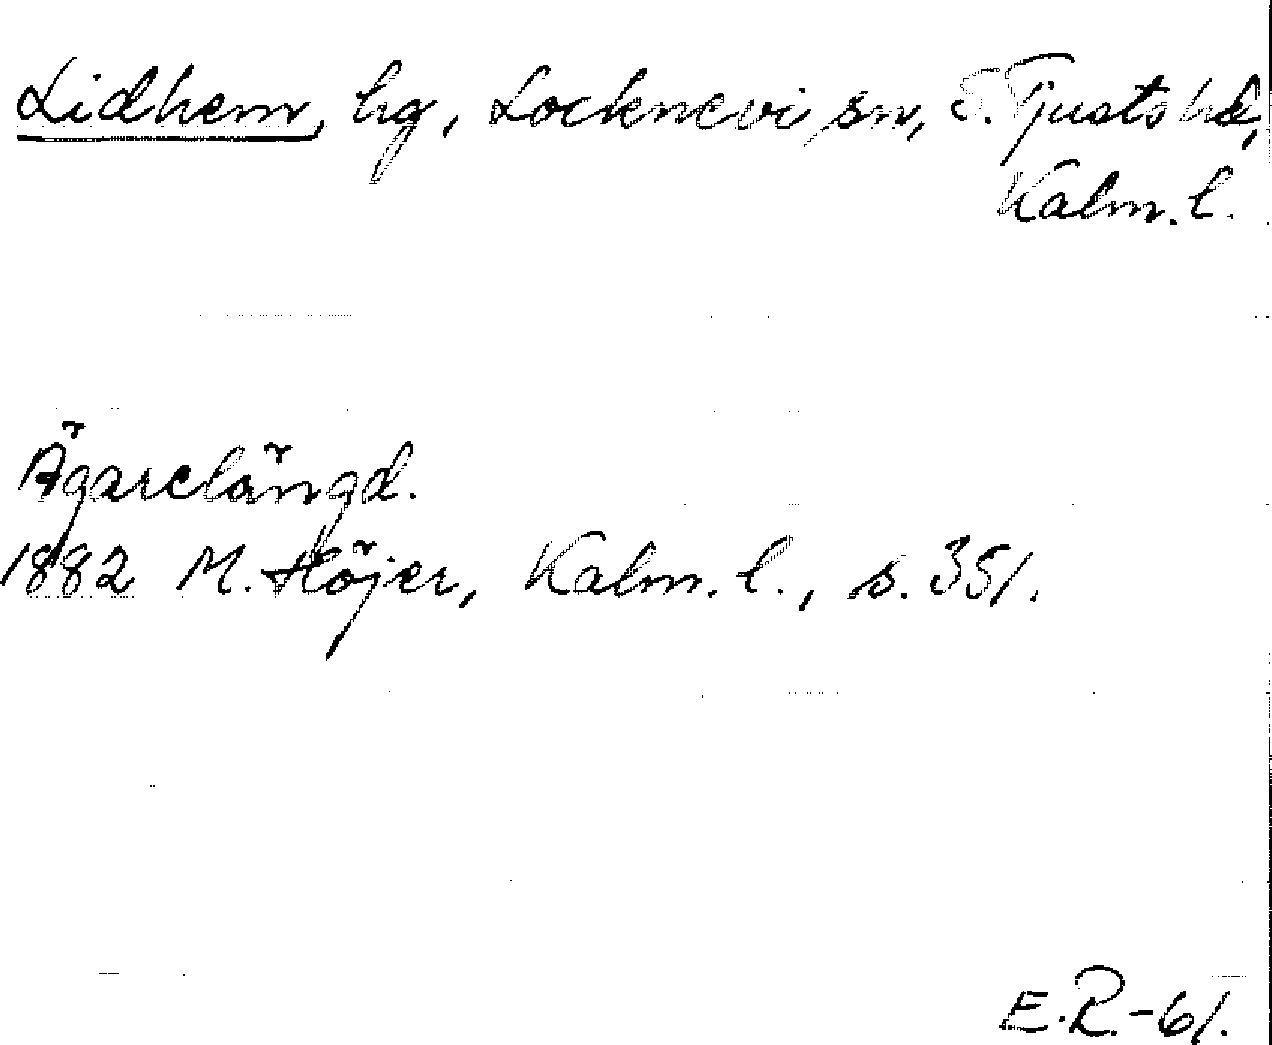 Lidhem, hg, Locknevi sn, S. Tjusts hd,
Kalm. l.
Ägarelängd.
1882 M. Höjer, Kalm. l., s. 351.
E.R.-61.